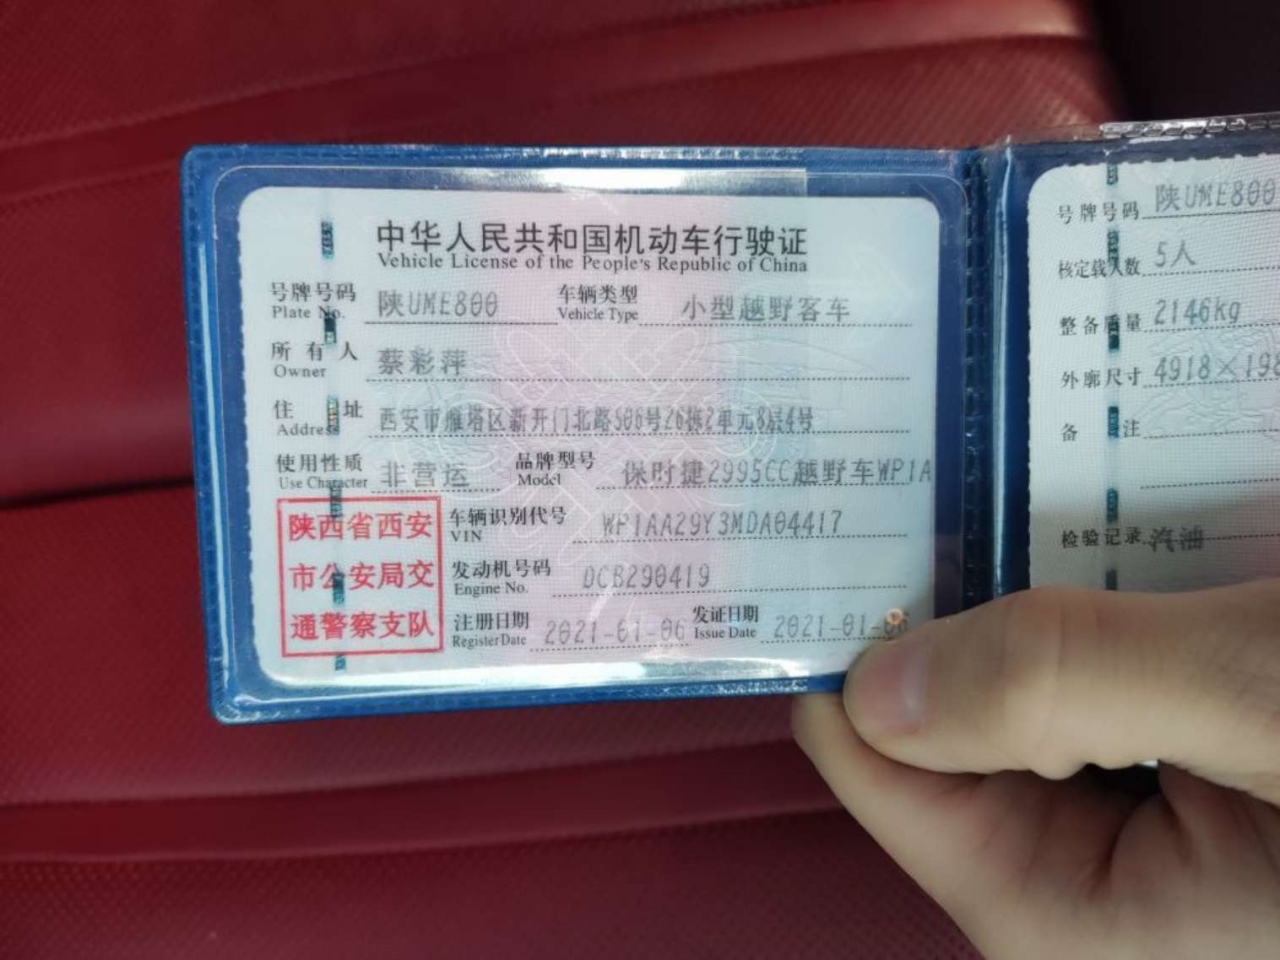 中华人民共和国机动车行驶证
Vehicle License of the People's Republic of China
号牌号码 陕UME800 车辆类型 小型越野客车
Plate No. Vehicle Type
所有人 蔡彩萍
Owner
住址 西安市雁塔区新开门北路506号26栋2单元8层4号
Address
使用性质 非营运 品牌型号 保时捷2995CC越野车WP1A
Use Character Model
车辆识别代号 WP1AA29Y3MDA04417
VIN
发动机号码 DCB290419
Engine No.
注册日期 2021-01-06 发证日期 2021-01-06
Register Date Issue Date
陕西省西安
市公安局交
通警察支队
号牌号码 陕UME800
核定载人数 5人
整备质量 2146kg
外廓尺寸 4918×198
备注
检验记录 汽油